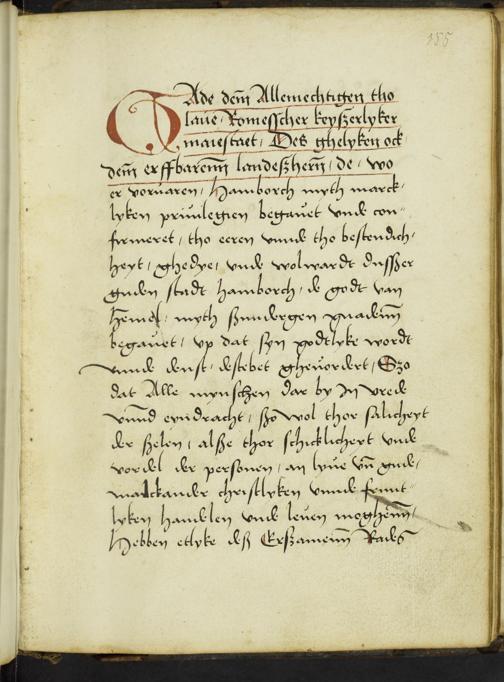 185
GAde dem Allemechtigen tho
laue, Romesscher keyszerlyker
maiestaet, Des ghelyken ock
dem erffbarenn landeszhern, de, wo
er voruaren, Hamborch myth marck,
lyken priuilegien begauet vnde con,,
firmeret, tho eeren vnnde tho bestendich,
heyt, ghedye, vnde wolwardt dusszer
guden stadt Hamborch, de godt van
Hemel, myth szundergen gnadenn
begauet, vp dat syn godtlyke wordt
vnnde denst, destebet gheuordert, Szo
dat Alle mynschen dar by In vrede
vnnd eyndracht, szo wol thor salicheyt
der szelen, alsze thor schicklicheyt vnde
vordel der personen, an lyue vn gude,
malckander christlyken vnnde frunt,
lyken handelen vnde leuen moghenn,
Hebben etlyke desz Erszamenn Rades